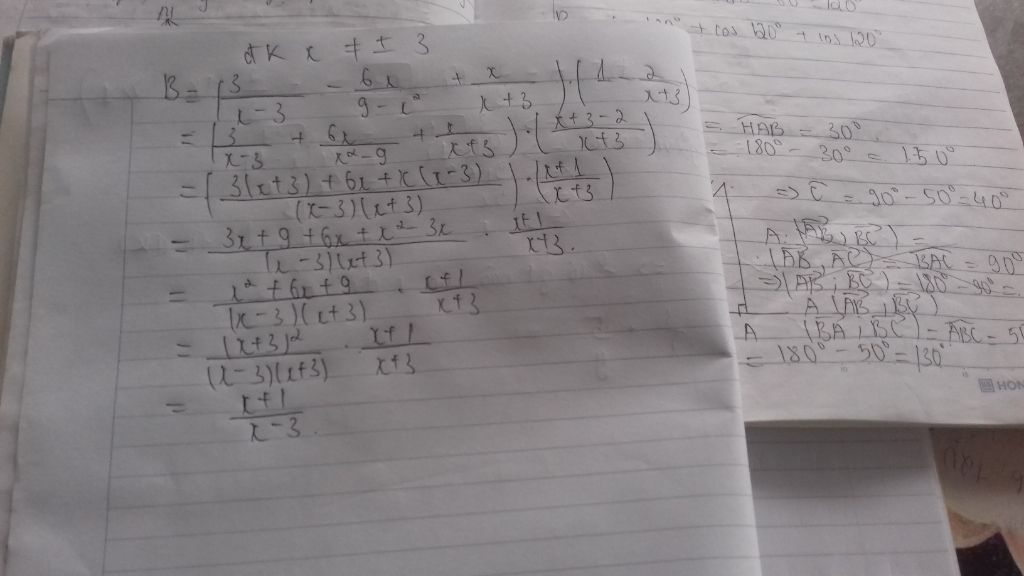 đK x ≠ ± 3
B = (3/(x-3) - 6x/(9-x²) + x/(x+3)) · (1 - 2/(x+3))
= (3/(x-3) + 6x/(x²-9) + x/(x+3)) · ((x+3-2)/(x+3))
= ((3(x+3)+6x+x(x-3))/((x-3)(x+3))) · ((x+1)/(x+3))
= (3x+9+6x+x²-3x)/((x-3)(x+3)) · (x+1)/(x+3).
= (x²+6x+9)/((x-3)(x+3)) · (x+1)/(x+3)
= (x+3)²/((x-3)(x+3)) · (x+1)/(x+3)
= (x+1)/(x-3).
+ cos 120° + cos 120°
= HAB = 30°
= 180° - 30° = 150°
=> C = 90° - 50° = 40°
A. (AB, BC) =
(AB, AC) = BAC = 90°
=> (AB, BC) = 180° - 90° =
A (AB, BC)
A (BA, BC) = ABC = 5
= 180° - 50° = 130°
HON